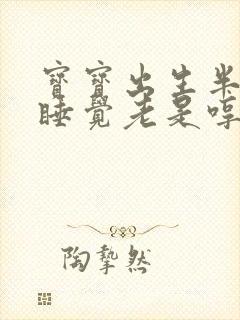 寶寶出生半
睡覺老是哼
陶摯然